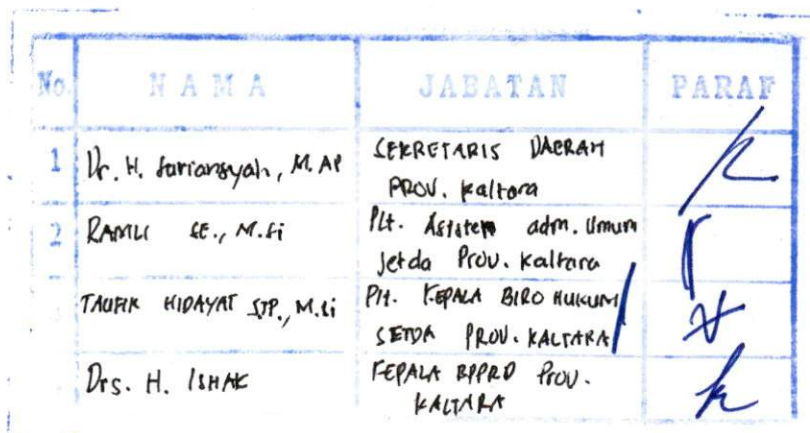 No. N A M A JABATAN PARAF
1 Dr. H. Suriansyah, M.AP SEKRETARIS DAERAH
PROV. Kaltara
2 RAMLI SE., M.Si Plt. Asisten adm. Umum
Setda Prov. Kaltara
TAUFIK HIDAYAT STP., M.Si Plt. KEPALA BIRO HUKUM
SETDA PROV. KALTARA
Drs. H. ISHAK KEPALA BPPRD Prov.
KALTARA